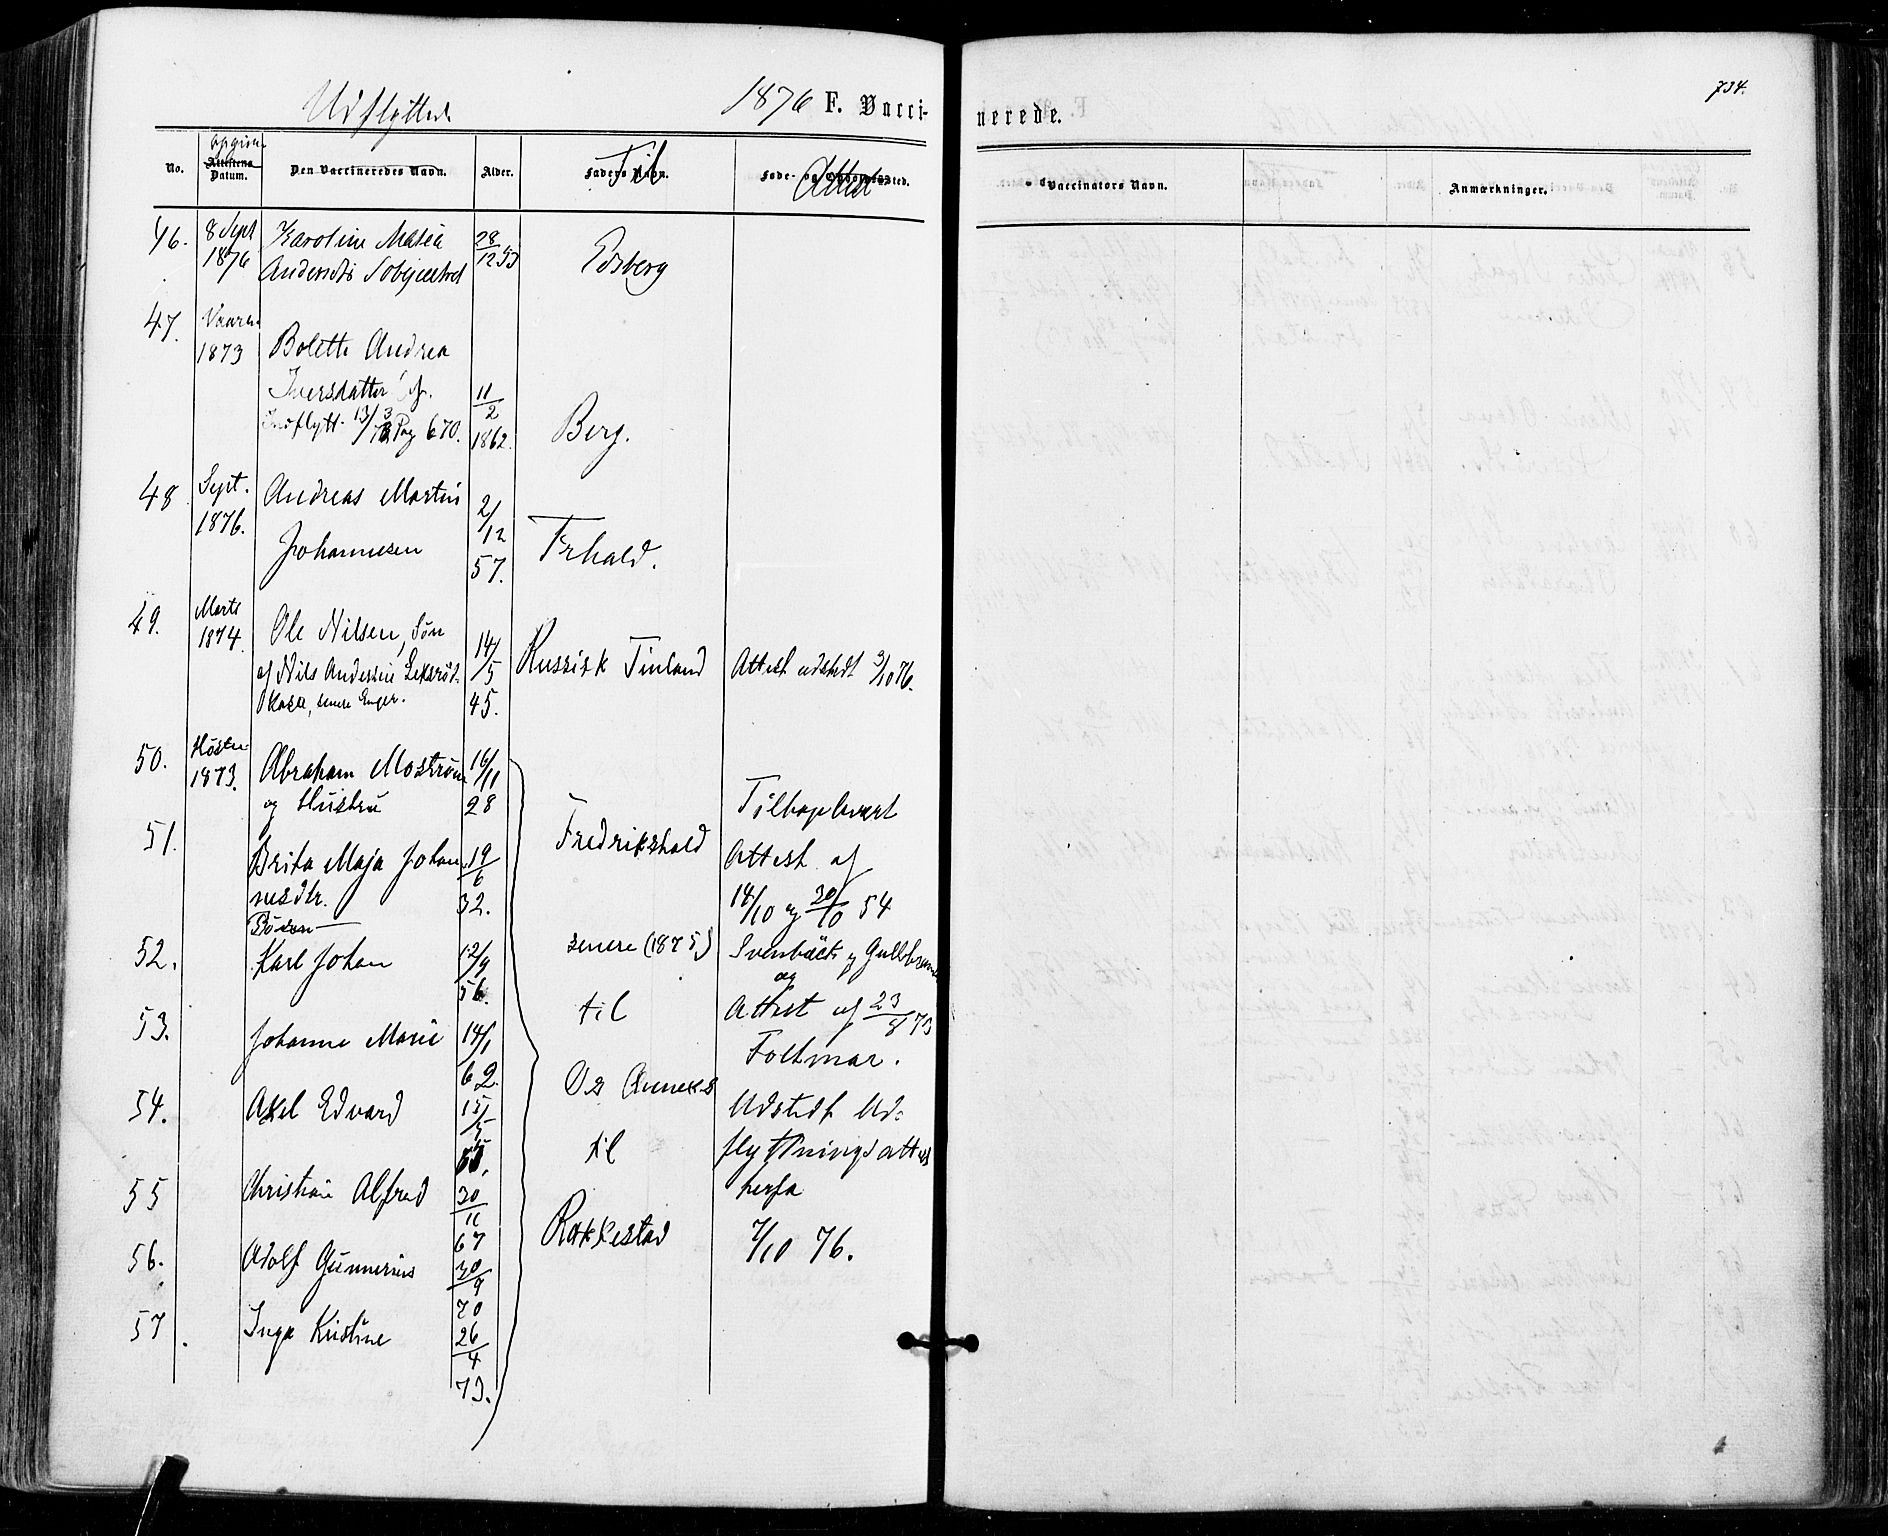 734.
Udflyttede 1876 F. Vacci-
nerede.
No. Attestens Datum. Den Vaccineredes Navn. Alder. Faders Navn. Føde- og Opholdssted.
Til Attest
Vaccinators Navn. Anmærkninger.
46. 8 Sept 1876 Karoline Maria 28/12 53 Edsberg
47. Vaaren 1873 Bolette Andrea
Iversdatter
Indflytt. 13/3 Pag 670. 11/2 1862. Berg.
48. Sept. 1876. Andreas Martin
Johannesen 2/12 57. Frhald.
49. Marts 1874. Ole Nilsen, Søn
af Nils Andersen
senere Enger. 14/5 45. Russisk Finland Attest udstedt 3/10 76.
50. Høsten 1873. Abraham Mostrøm
og Hustru 16/11 28
51. Brita Maja Johan
nesdtr. 19/6 32.
Børn
52. Karl Johan 12/9 56.
53. Johanne Marie 14/1 62.
54. Axel Edvard 15/5
55 Christian Alfred 30/11 67
56. Adolf Gunnerius 30/9 70
57. Inga Kristine 26/4 73.
Fredrikshald
senere (1875)
til
Os Anneks
til
Rakkestad
Attest af
14/10 og 30/10 54
og
Attest af 23/8 73
Udstedt Ud-
flyttningsattest
herfra
7/10 76.